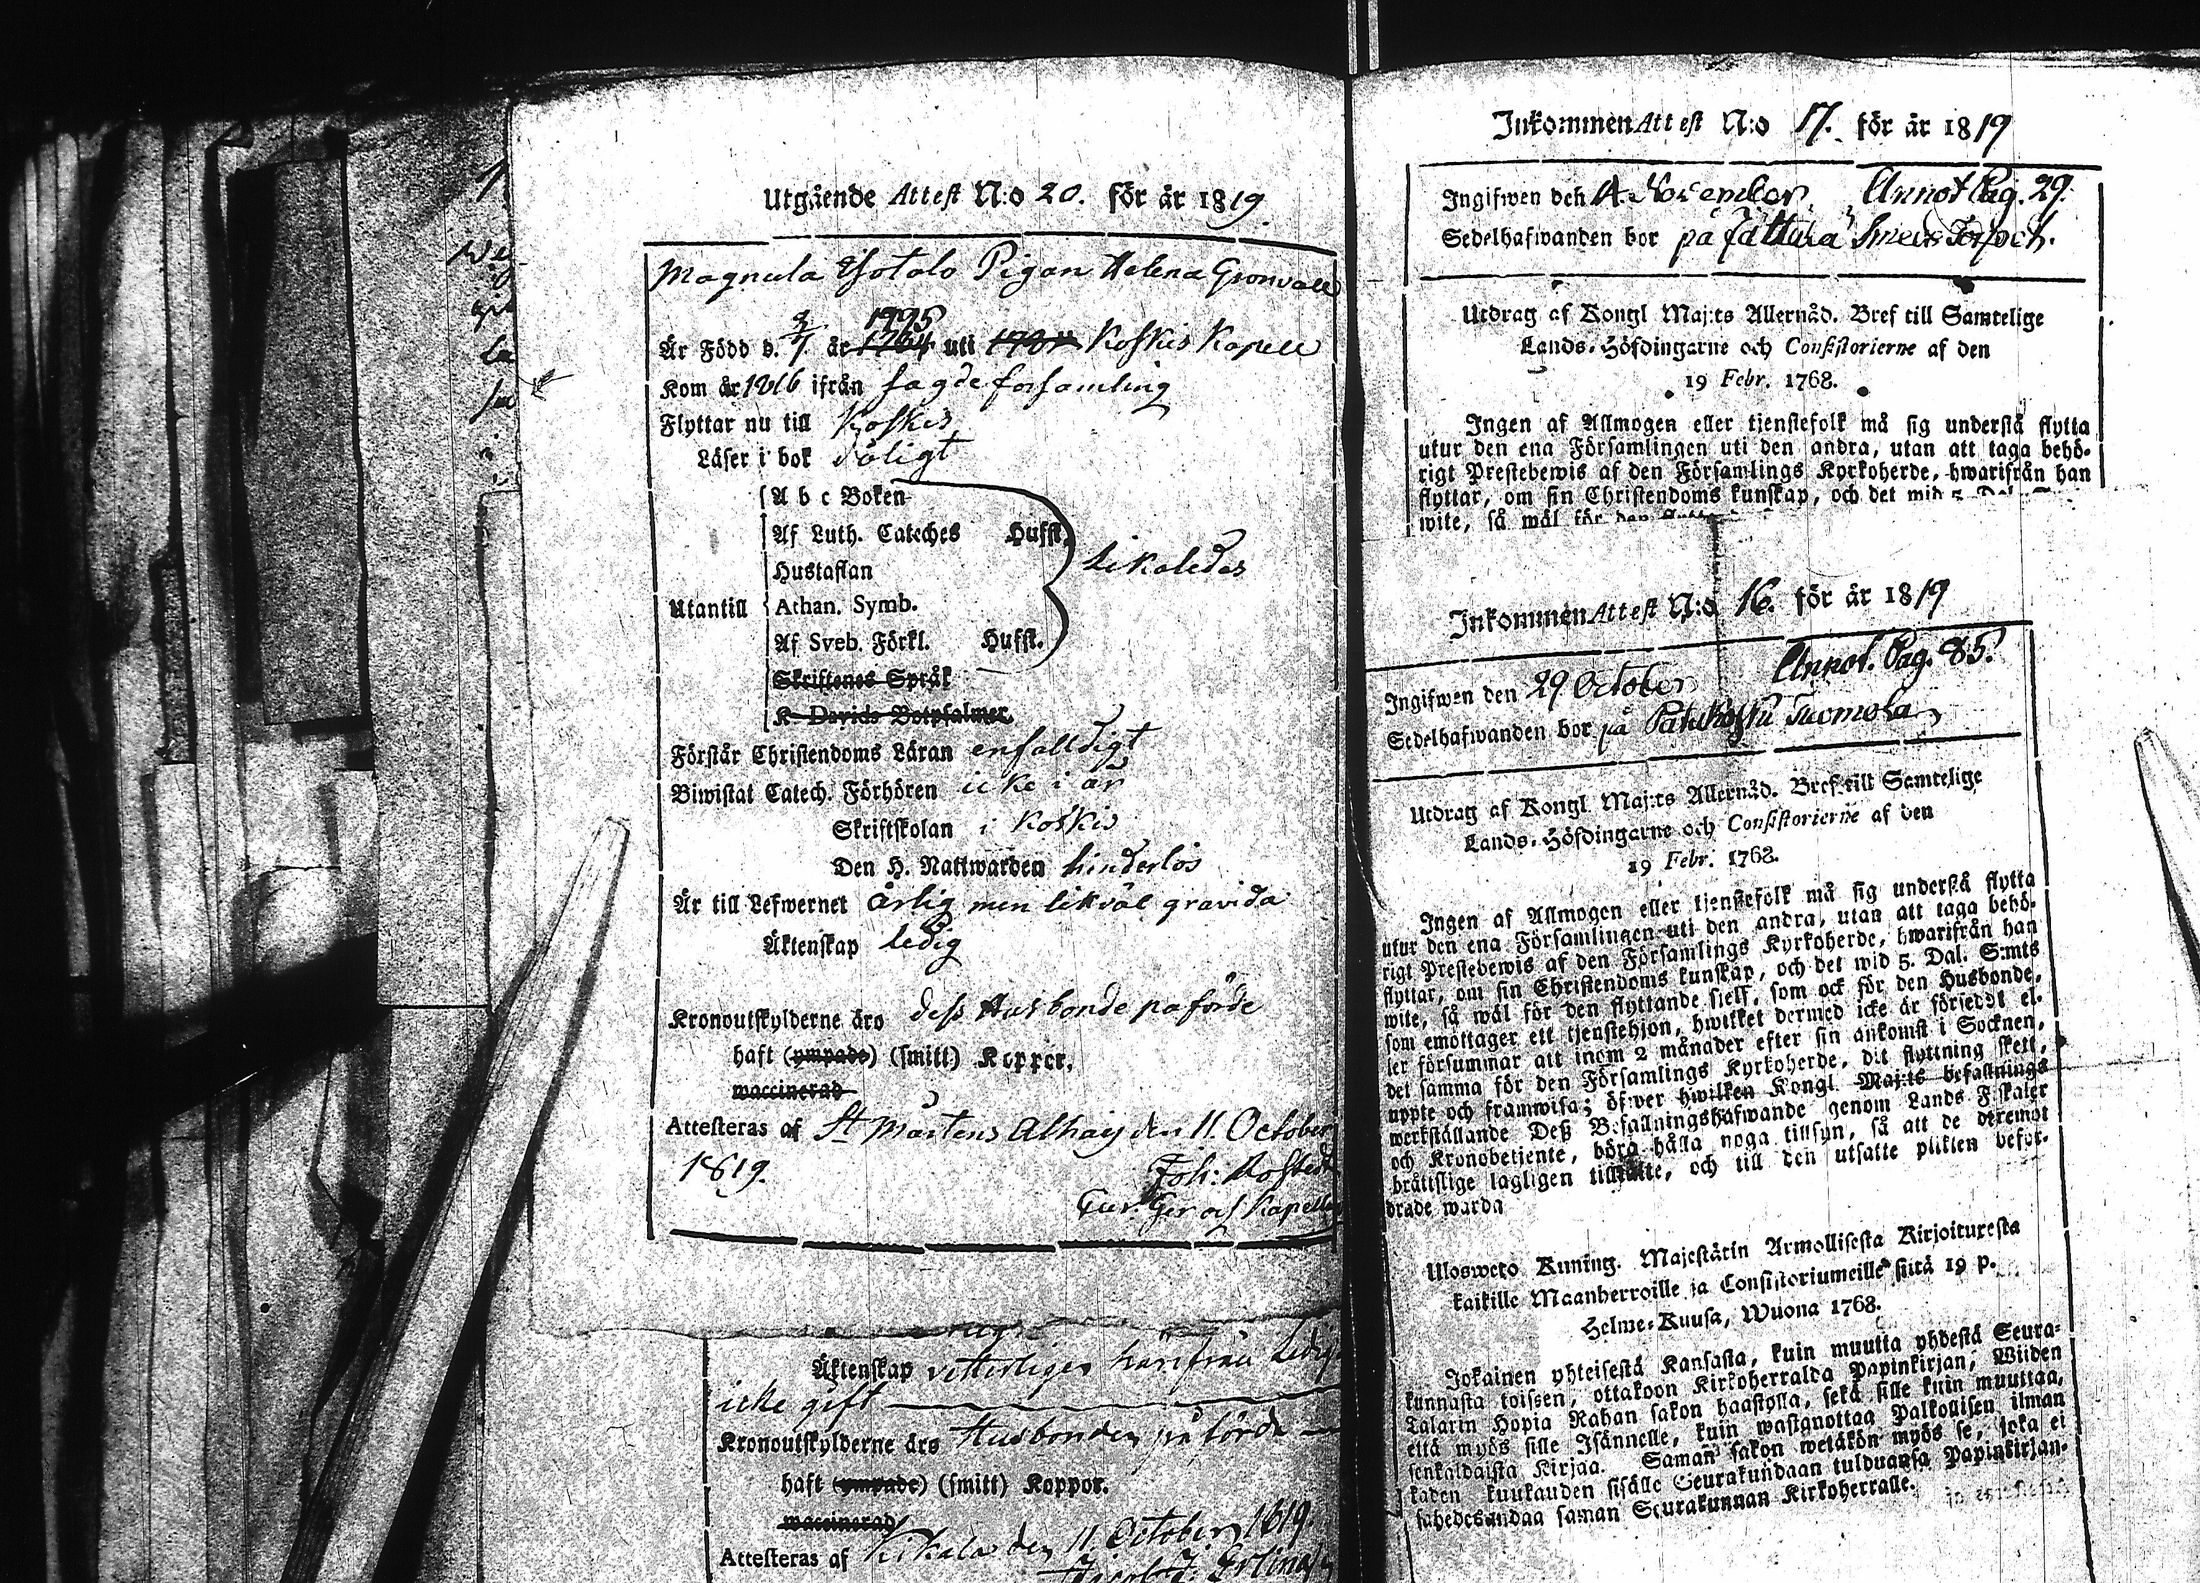 Utgående Attest N:o 20. för år 1819.
Magnula Isotalo Pigan Helena Gronvall
1795
Är Född d. 2/7 år 1764 uti Koskis Kapell
Kom år 1816 ifrån sagde forsamling
Flyttar nu till Koskis
Läser i bok dåligt
A b c Boken
Af Luth. Cateches Hufst.
Hustaflan
likaledes
Utantill Athan. Symb.
Af Sveb. Förkl. Hufst.
Skriftenes Språk
K. Davids Botpsalmer.
Förstår Christendoms Läran enfalldigt
Biwistat Catech. Förhören icke i år
Skriftskolan i Koskis
Den H. Nattwarden hinderlös
Är till Lefwernet ärlig men likväl gravida
Äktenskap ledig
Kronoutskylderne äro dess Husbonde påförde
haft (ympade) (smitt) Koppor.
waccinerad
Attesteras af St Mårtens den 11. October
1819.
Joh:
Äktenskap vetterligen härifrån ledig
icke gift
Kronoutskylderne äro Husbonden påförda
haft (ympade) (smitt) Koppor.
waccinerad
Attesteras af Kikala den 11. October 1819.
Inkommen Attest N:o 17. för år 1819
Ingifwen den 4. November Annot Pag. 29.
Sedelhafwanden bor på
Utdrag af Kongl Maj:ts Allernåd. Bref till Samtelige
Lands-Höfdingarne och Consistorierne af den
19 Febr. 1768.
Ingen af Allmogen eller tjenstefolk må sig understå flytta
utur den ena Församlingen uti den andra, utan att taga behö-
rigt Prestebewis af den Församlings Kyrkoherde, hwarifrån han
flyttar, om sin Christendoms kunskap, och det wid 5. Dal.
wite, så wäl för den
Inkommen Attest N:o 16. för år 1819
Ingifwen den 29 October Annot. Pag. 85.
Sedelhafwanden bor på Patakoski Tuomola
Utdrag af Kongl. Maj:ts Allernåd. Bref till Samtelige
Lands-Höfdingarne och Consistorierne af den
19 Febr. 1768.
Ingen af Allmogen eller tjenstefolk må sig understå flytta
utur den ena Församlingen uti den andra, utan att taga behö-
rigt Prestebewis af den Församlings Kyrkoherde, hwarifrån han
flyttar, om sin Christendoms kunskap, och det wid 5. Dal. S:mts
wite, så wäl för den flyttande sielf, som ock för den Husbonde,
som emottager ett tjenstehjon, hwilket dermed icke är förseddt el-
ler försummar att inom 2 månader efter sin ankomst i Socknen,
det samma för den Församlings Kyrkoherde, dit flyttning skett,
uppte och framwisa; öfwer hwilken Kongl. Maj:ts befallnings
werkställande Deß Befallningshafwande genom Lands Fiskaler
och Kronobetjente, böra hålla noga tillsyn, så att de deremot
brätslige lagligen tilltalte, och till den utsatte plikten befor-
drade warda
Ulosweto Kuning. Majestätin Armollisesta Kirjoituxesta
kaikille Maanherroille ja Consistoriumeille siitä 19 p.
Helme-Kuusa, Wuona 1768.
Jokainen yhteisestä Kansasta, kuin muutta yhdestä Seura-
kunnasta toiseen, ottakoon Kirkoherralda Papinkirjan, Wiiden
Talarin Hopia Rahan sakon haastolla, sekä sille kuin muuttaa,
että myös sille Isännelle, kuin wastanottaa Palkollisen ilman
senkaldaista Kirjaa. Saman sakon wetäkön myös se, joka ei
kahden kuukauden sisälle Seurakundaan tulduansa Papinkirjan-
sa saman Seurakunnan Kirkoherralle.